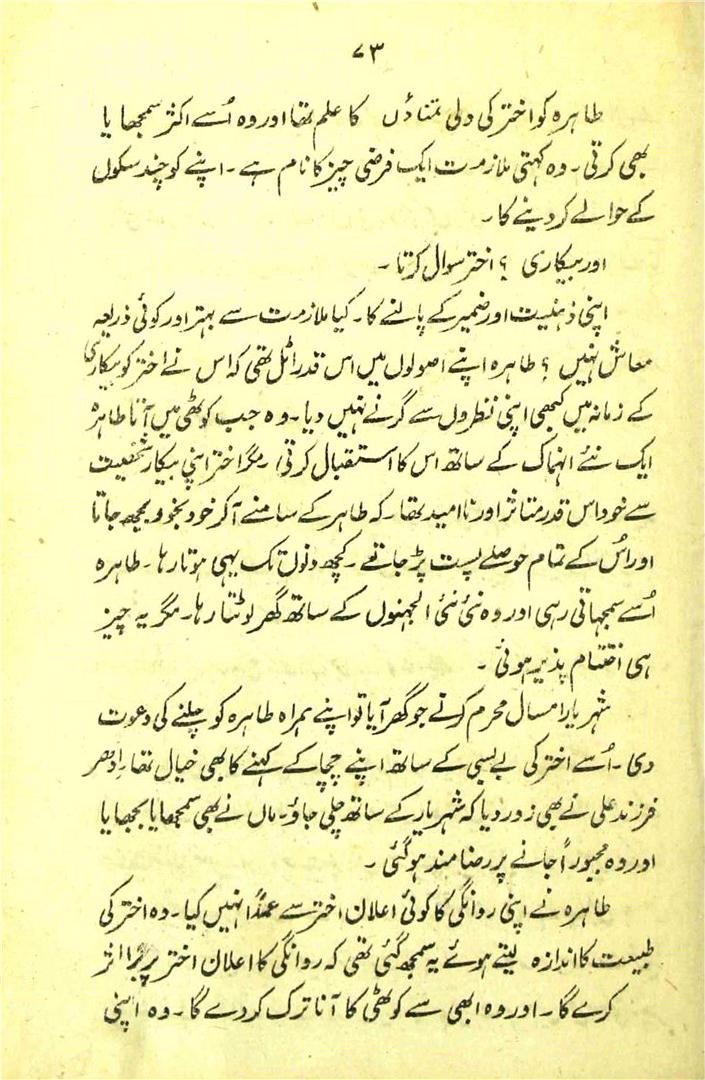 ۷۳
طاہرہ کو اختر کی دلی تمناؤں کا علم تھا اور وہ اُسے اکثر سمجھایا
بھی کرتی۔ وہ کہتی ملازمت ایک فرضی چیز کا نام ہے۔ اپنے کو چند سکوں
کے حوالے کر دینے کا۔
اور بیکاری ؟ اختر سوال کرتا۔
اپنی ذہنیت اور ضمیر کے پالنے کا۔ کیا ملازمت سے بہتر اور کوئی ذریعہ
معاش نہیں ؟ طاہرہ اپنے اصولوں میں اس قدر اٹل تھی کہ اس نے اختر کو بیکاری
کے زمانہ میں کبھی اپنی نظروں سے گرنے نہیں دیا۔ وہ جب کوٹھی میں آتا طاہرہ
ایک نئے انہماک کے ساتھ اس کا استقبال کرتی، مگر اختر اپنی بیکار شخصیت
سے خود اس قدر متاثر اور نا امید تھا۔ کہ طاہر کے سامنے آکر خود بخود بجھ جاتا
اور اُس کے تمام حوصلے پست پڑ جاتے۔ کچھ دنوں تک یہی ہوتا رہا۔ طاہرہ
اُسے سمجہاتی رہی اور وہ نئی نئی الجہنوں کے ساتھ گھر لوٹتا رہا۔ مگر یہ چیز
ہی اختتام پذیر ہوئی۔
شہر یار امسال محرم کرنے جو گھر آیا تو اپنے ہمراہ طاہرہ کو چلنے کی دعوت
دی۔ اُسے اختر کی بے بسی کے ساتھ اپنے چچا کے کہنے کا بھی خیال تھا۔ اِدہر
فرزند علی نے بھی زور دیا کہ شہر یار کے ساتھ چلی جاؤ۔ ماں نے بھی سمجھایا بجھایا
اور وہ مجبوراً جانے پر رضامند ہو گئی۔
طاہرہ نے اپنی روانگی کا کوئی اعلان اختر سے عمداً نہیں کیا۔ وہ اختر کی
طبیعت کا اندازہ لیتے ہوئے یہ سمجھ گئی تھی کہ روانگی کا اعلان اختر پر بُرا اثر
کرے گا۔ اور وہ ابھی سے کوٹھی کا آنا ترک کر دے گا۔ وہ اپنی